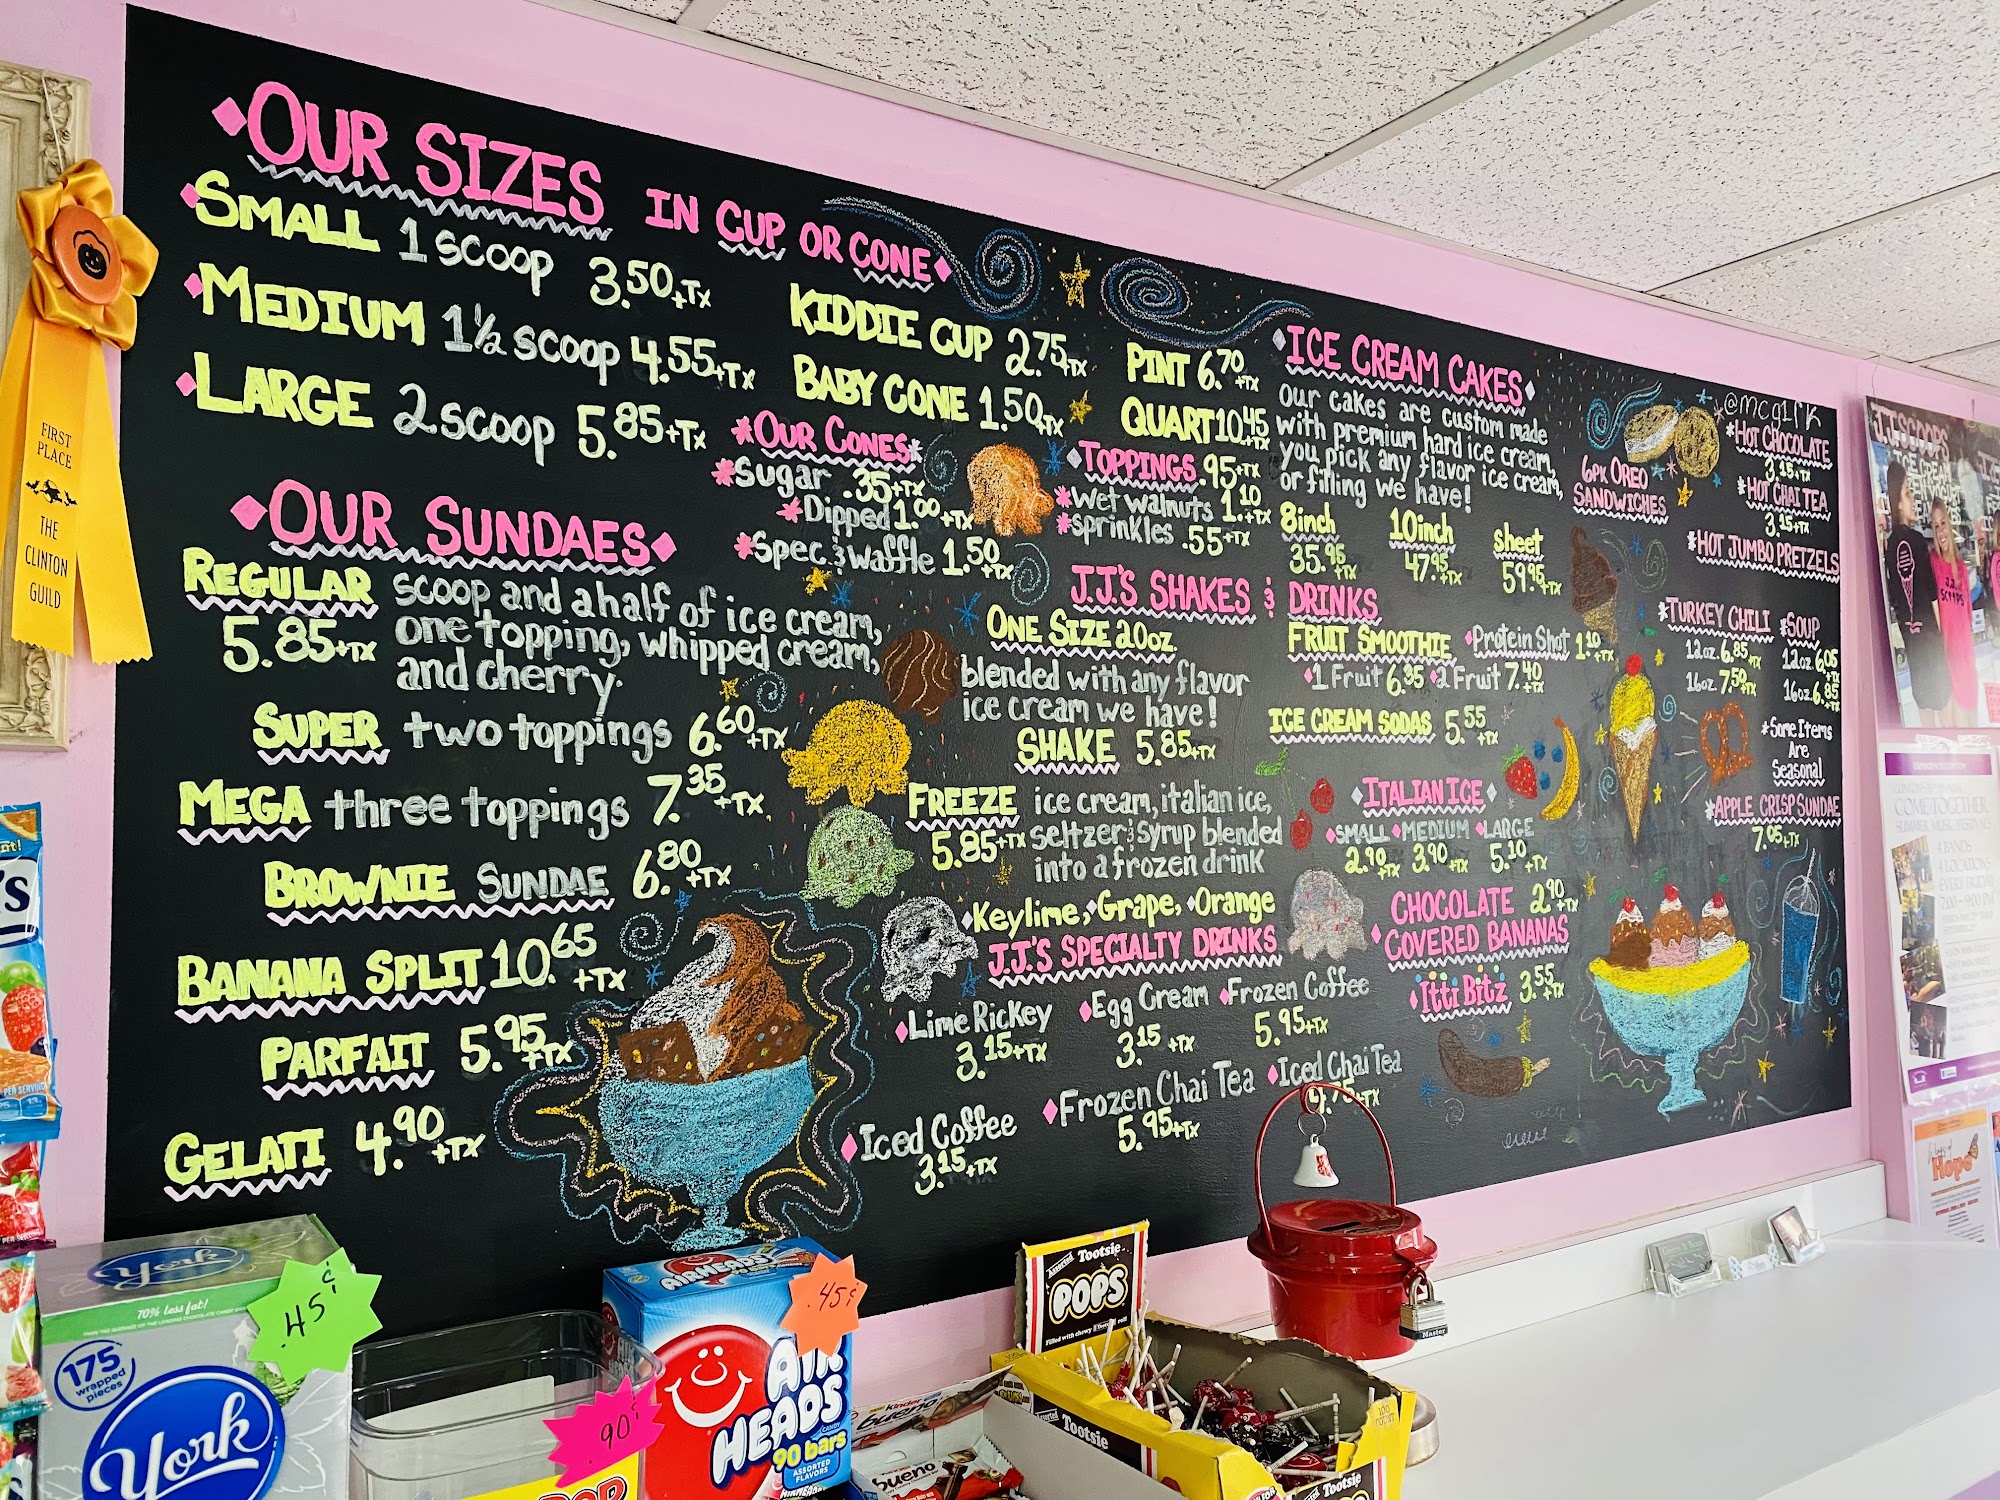 OUR SIZES IN CUP OR CONE
SMALL 1 scoop 3.50+TX
MEDIUM 1½ scoop 4.55+TX
LARGE 2 scoop 5.85+TX
KIDDIE CUP 2.75+TX
BABY CONE 1.50+TX
PINT 6.70+TX
QUART 10.45+TX
*OUR CONES*
*Sugar .35+TX
*Dipped 1.00+TX
*Spec. & Waffle 1.50+TX
TOPPINGS .95+TX
*Wet walnuts 1.10+TX
*sprinkles .55+TX
OUR SUNDAES
REGULAR scoop and a half of ice cream,
5.85+TX one topping, whipped cream,
and cherry.
SUPER two toppings 6.60+TX
MEGA three toppings 7.35+TX
BROWNIE SUNDAE 6.80+TX
BANANA SPLIT 10.65+TX
PARFAIT 5.95+TX
GELATI 4.90+TX
ICE CREAM CAKES
Our cakes are custom made
with premium hard ice cream,
you pick any flavor ice cream,
or filling we have!
8inch 10inch sheet
35.95+TX 47.95+TX 59.95+TX
J.J.'S SHAKES & DRINKS
ONE SIZE 20oz.
blended with any flavor
ice cream we have!
SHAKE 5.85+TX
FREEZE ice cream, italian ice,
5.85+TX seltzer & syrup blended
into a frozen drink
Keylime, Grape, Orange
FRUIT SMOOTHIE Protein Shot 1.10+TX
1 Fruit 6.35 2 Fruit 7.40+TX
ICE CREAM SODAS 5.55+TX
ITALIAN ICE
SMALL MEDIUM LARGE
2.90+TX 3.90+TX 5.10+TX
CHOCOLATE 2.90+TX
COVERED BANANAS
Itti Bitz 3.55+TX
J.J.'S SPECIALTY DRINKS
Lime Rickey 3.15+TX
Egg Cream 3.15+TX
Frozen Coffee 5.95+TX
Iced Coffee 3.15+TX
Frozen Chai Tea 5.95+TX
Iced Chai Tea
.75+TX
6pk OREO
SANDWICHES
@mcg1rk
*HOT CHOCOLATE
3.15+TX
*HOT CHAI TEA
3.15+TX
*HOT JUMBO PRETZELS
*TURKEY CHILI *SOUP
12oz. 6.85+TX 12oz 6.05+TX
16oz. 7.50+TX 16oz. 6.85+TX
*Some Items
Are
Seasonal
*APPLE CRISP SUNDAE
7.05+TX
FIRST
PLACE
THE
CLINTON
GUILD
J.J. SCOOPS
ICE CREAM
COME TOGETHER
SUMMER MUSIC FESTIVAL
4 BANDS
4 LOCATIONS
EVERY FRIDAY
7:00 - 9:00 PM
Hope
York
70% less fat!
175
wrapped
pieces
York
.45¢
90¢
AIRHEADS
.45¢
AIR
HEADS
90 bars
ASSORTED
FLAVORS
kinder
bueno
bueno
Assorted Tootsie
POPS
Filled with chewy
Tootsie
Tootsie
Master